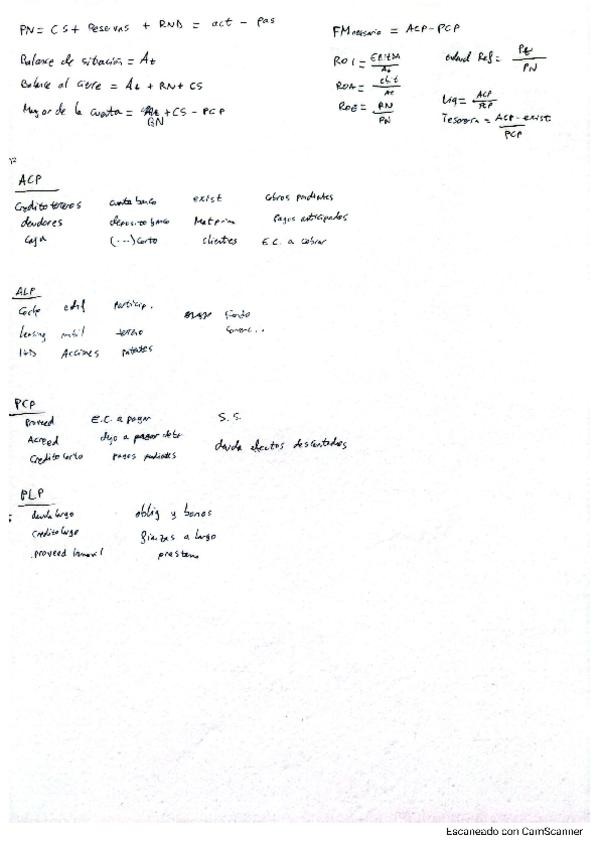 PN = CS + Reservas + RND = act - pas
Balance de situación = At
Balance al cierre = At + RN + CS
Mayor de la cuenta = + CS - PCP
BN
FM necesario = ACP - PCP
ROI = EBITDA / At
ROA = / At
ROE = RN / PN
Liq = ACP / PCP
Tesoreria = ACP - exist / PCP
ACP
Credito terceros cuenta banco exist cobros pendientes
deudores deposito banco Mat prim Pagos anticipados
Caja (...) corto clientes E.C. a cobrar
ALP
Coche edif particip. fondo
leasing mobil terreno comerc...
I+D Acciones patentes
PCP
Proveed E.C. a pagar S.S.
Acreed a pagar
Credito corto pagos pendientes deuda efectos descontados
PLP
deuda largo oblig y bonos
Credito largo fianzas a largo
proveed inmovil prestamo
Escaneado con CamScanner